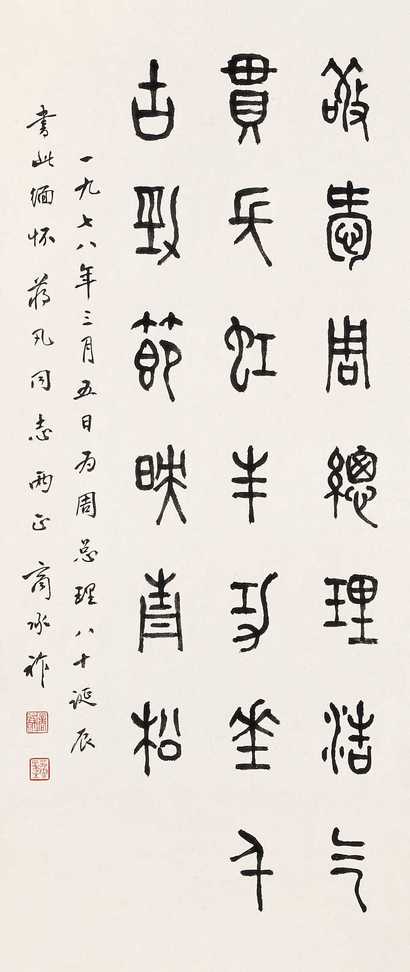 敬愛周總理浩气
貫長虹丰功垂千
古勁節映青松
一九七八年三月五日为周总理八十诞辰
書此缅怀蒋凡同志两正商承祚